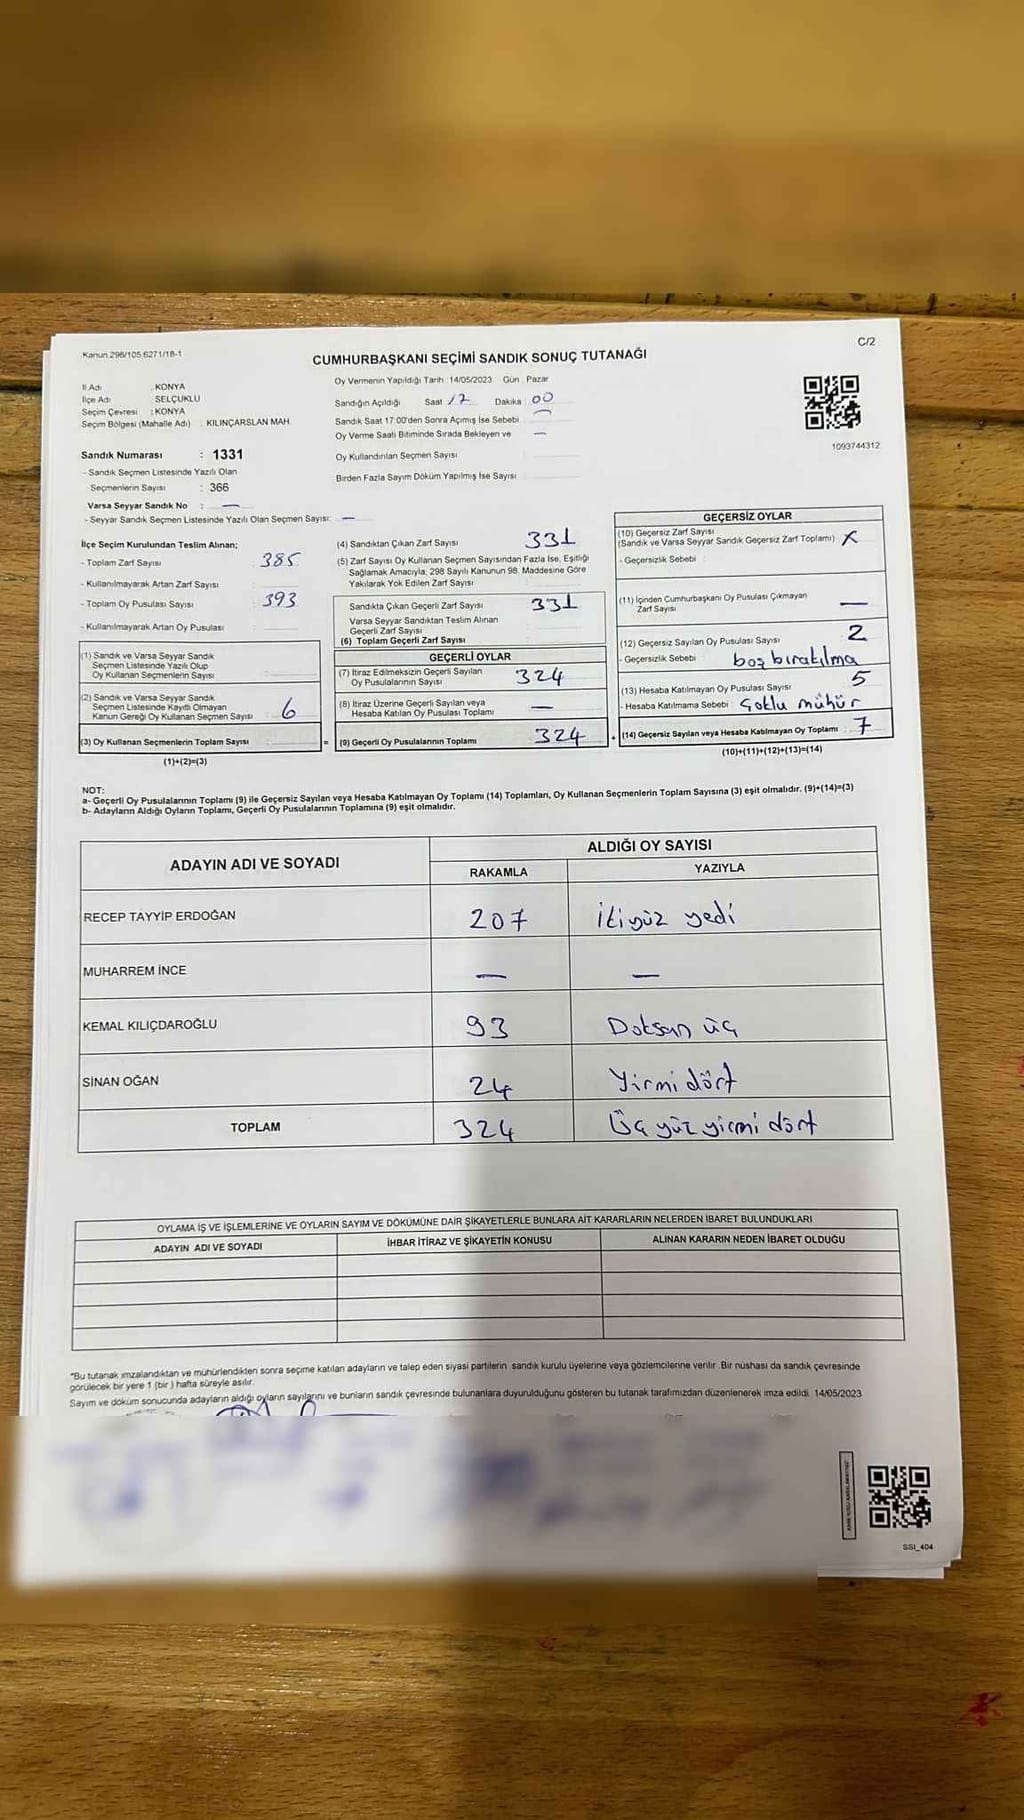 Kanun.298/105,6271/18-1
C/2
CUMHURBAŞKANI SEÇİMİ SANDIK SONUÇ TUTANAĞI
İl Adı : KONYA
İlçe Adı : SELÇUKLU
Seçim Çevresi : KONYA
Seçim Bölgesi (Mahalle Adı) : KILINÇARSLAN MAH
Sandık Numarası : 1331
- Sandık Seçmen Listesinde Yazılı Olan
Seçmenlerin Sayısı : 366
Varsa Seyyar Sandık No : —
- Seyyar Sandık Seçmen Listesinde Yazılı Olan Seçmen Sayısı: —
Oy Vermenin Yapıldığı Tarih :14/05/2023 Gün : Pazar
Sandığın Açıldığı Saat 17 Dakika 00
Sandık Saat 17:00'den Sonra Açımış İse Sebebi —
Oy Verme Saati Bitiminde Sırada Bekleyen ve —
Oy Kullandırılan Seçmen Sayısı
Birden Fazla Sayım Döküm Yapılmış İse Sayısı
1093744312
İlçe Seçim Kurulundan Teslim Alınan;
- Toplam Zarf Sayısı : 385
- Kullanılmayarak Artan Zarf Sayısı :
- Toplam Oy Pusulası Sayısı : 393
- Kullanılmayarak Artan Oy Pusulası :
(1) Sandık ve Varsa Seyyar Sandık
Seçmen Listesinde Yazılı Olup
Oy Kullanan Seçmenlerin Sayısı
(2) Sandık ve Varsa Seyyar Sandık
Seçmen Listesinde Kayıtlı Olmayan
Kanun Gereği Oy Kullanan Seçmen Sayısı : 6
(3) Oy Kullanan Seçmenlerin Toplam Sayısı :
(1)+(2)=(3)
(4) Sandıktan Çıkan Zarf Sayısı 331
(5) Zarf Sayısı Oy Kullanan Seçmen Sayısından Fazla İse, Eşitliği
Sağlamak Amacıyla, 298 Sayılı Kanunun 98. Maddesine Göre
Yakılarak Yok Edilen Zarf Sayısı
Sandıkta Çıkan Geçerli Zarf Sayısı 331
Varsa Seyyar Sandıktan Teslim Alınan
Geçerli Zarf Sayısı
(6) Toplam Geçerli Zarf Sayısı
GEÇERLİ OYLAR
(7) İtiraz Edilmeksizin Geçerli Sayılan
Oy Pusulalarının Sayısı 324
(8) İtiraz Üzerine Geçerli Sayılan veya
Hesaba Katılan Oy Pusulası Toplamı —
= (9) Geçerli Oy Pusulalarının Toplamı 324
GEÇERSİZ OYLAR
(10) Geçersiz Zarf Sayısı
(Sandık ve Varsa Seyyar Sandık Geçersiz Zarf Toplamı) : X
- Geçersizlik Sebebi
(11) İçinden Cumhurbaşkanı Oy Pusulası Çıkmayan
Zarf Sayısı —
(12) Geçersiz Sayılan Oy Pusulası Sayısı 2
- Geçersizlik Sebebi boş bırakılma
(13) Hesaba Katılmayan Oy Pusulası Sayısı 5
- Hesaba Katılmama Sebebi çoklu mühür
+ (14) Geçersiz Sayılan veya Hesaba Katılmayan Oy Toplamı : 7
(10)+(11)+(12)+(13)=(14)
NOT:
a- Geçerli Oy Pusulalarının Toplamı (9) ile Geçersiz Sayılan veya Hesaba Katılmayan Oy Toplamı (14) Toplamları, Oy Kullanan Seçmenlerin Toplam Sayısına (3) eşit olmalıdır. (9)+(14)=(3)
b- Adayların Aldığı Oyların Toplamı, Geçerli Oy Pusulalarının Toplamına (9) eşit olmalıdır.
ADAYIN ADI VE SOYADI
ALDIĞI OY SAYISI
RAKAMLA YAZIYLA
RECEP TAYYİP ERDOĞAN 207 İkiyüz yedi
MUHARREM İNCE — —
KEMAL KILIÇDAROĞLU 93 Doksan üç
SİNAN OĞAN 24 Yirmi dört
TOPLAM 324 Üç yüz yirmi dört
OYLAMA İŞ VE İŞLEMLERİNE VE OYLARIN SAYIM VE DÖKÜMÜNE DAİR ŞİKAYETLERLE BUNLARA AİT KARARLARIN NELERDEN İBARET BULUNDUKLARI
ADAYIN ADI VE SOYADI İHBAR İTİRAZ VE ŞİKAYETİN KONUSU ALINAN KARARIN NEDEN İBARET OLDUĞU
*Bu tutanak imzalandıktan ve mühürlendikten sonra seçime katılan adayların ve talep eden siyasi partilerin sandık kurulu üyelerine veya gözlemcilerine verilir .Bir nüshası da sandık çevresinde
görülecek bir yere 1 (bir ) hafta süreyle asılır.
Sayım ve döküm sonucunda adayların aldığı oyların sayılarını ve bunların sandık çevresinde bulunanlara duyurulduğunu gösteren bu tutanak tarafımızdan düzenlenerek imza edildi. 14/05/2023
SSI_404